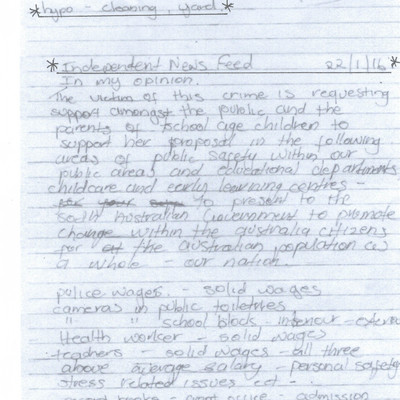 *hypo - cleaning, yard*
*Independent News Feed 22/1/16*
In my opinion.
The victim of this crime is requesting
support amongst the public and the
parents of school age children to
support her proposal in the following
areas of public safety within our
public areas and educational departments
childcare and early learning centres -
to present to the
South Australian Government to promote
change within the australia citizens
for the australian population as
a whole - our nation.
police wages. - solid wages
cameras in public toiletries
" " school block - interiour - exterio
Health worker - solid wages
teachers - solid wages - all three
above average salary - personal safety
stress related issues ect - .
- admission